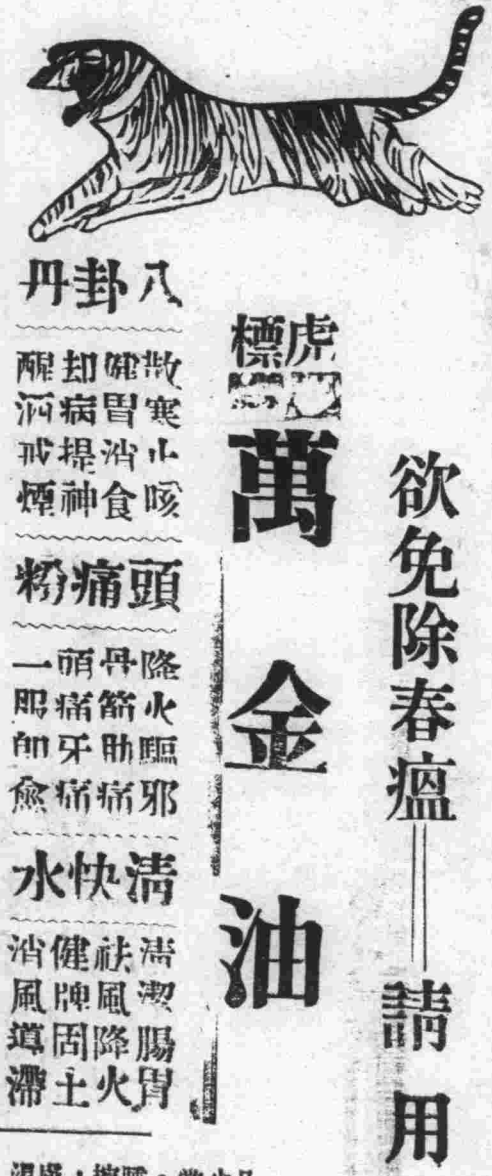 欲免除春瘟——請用
虎標
萬金油
八卦丹
散寒止咳
健胃消食
却病提神
醒酒戒煙
頭痛粉
降火驅邪
骨筋肋痛
頭痛牙痛
一服即愈
清快水
清潔腸胃
祛風降火
健牌固土
消風導滯